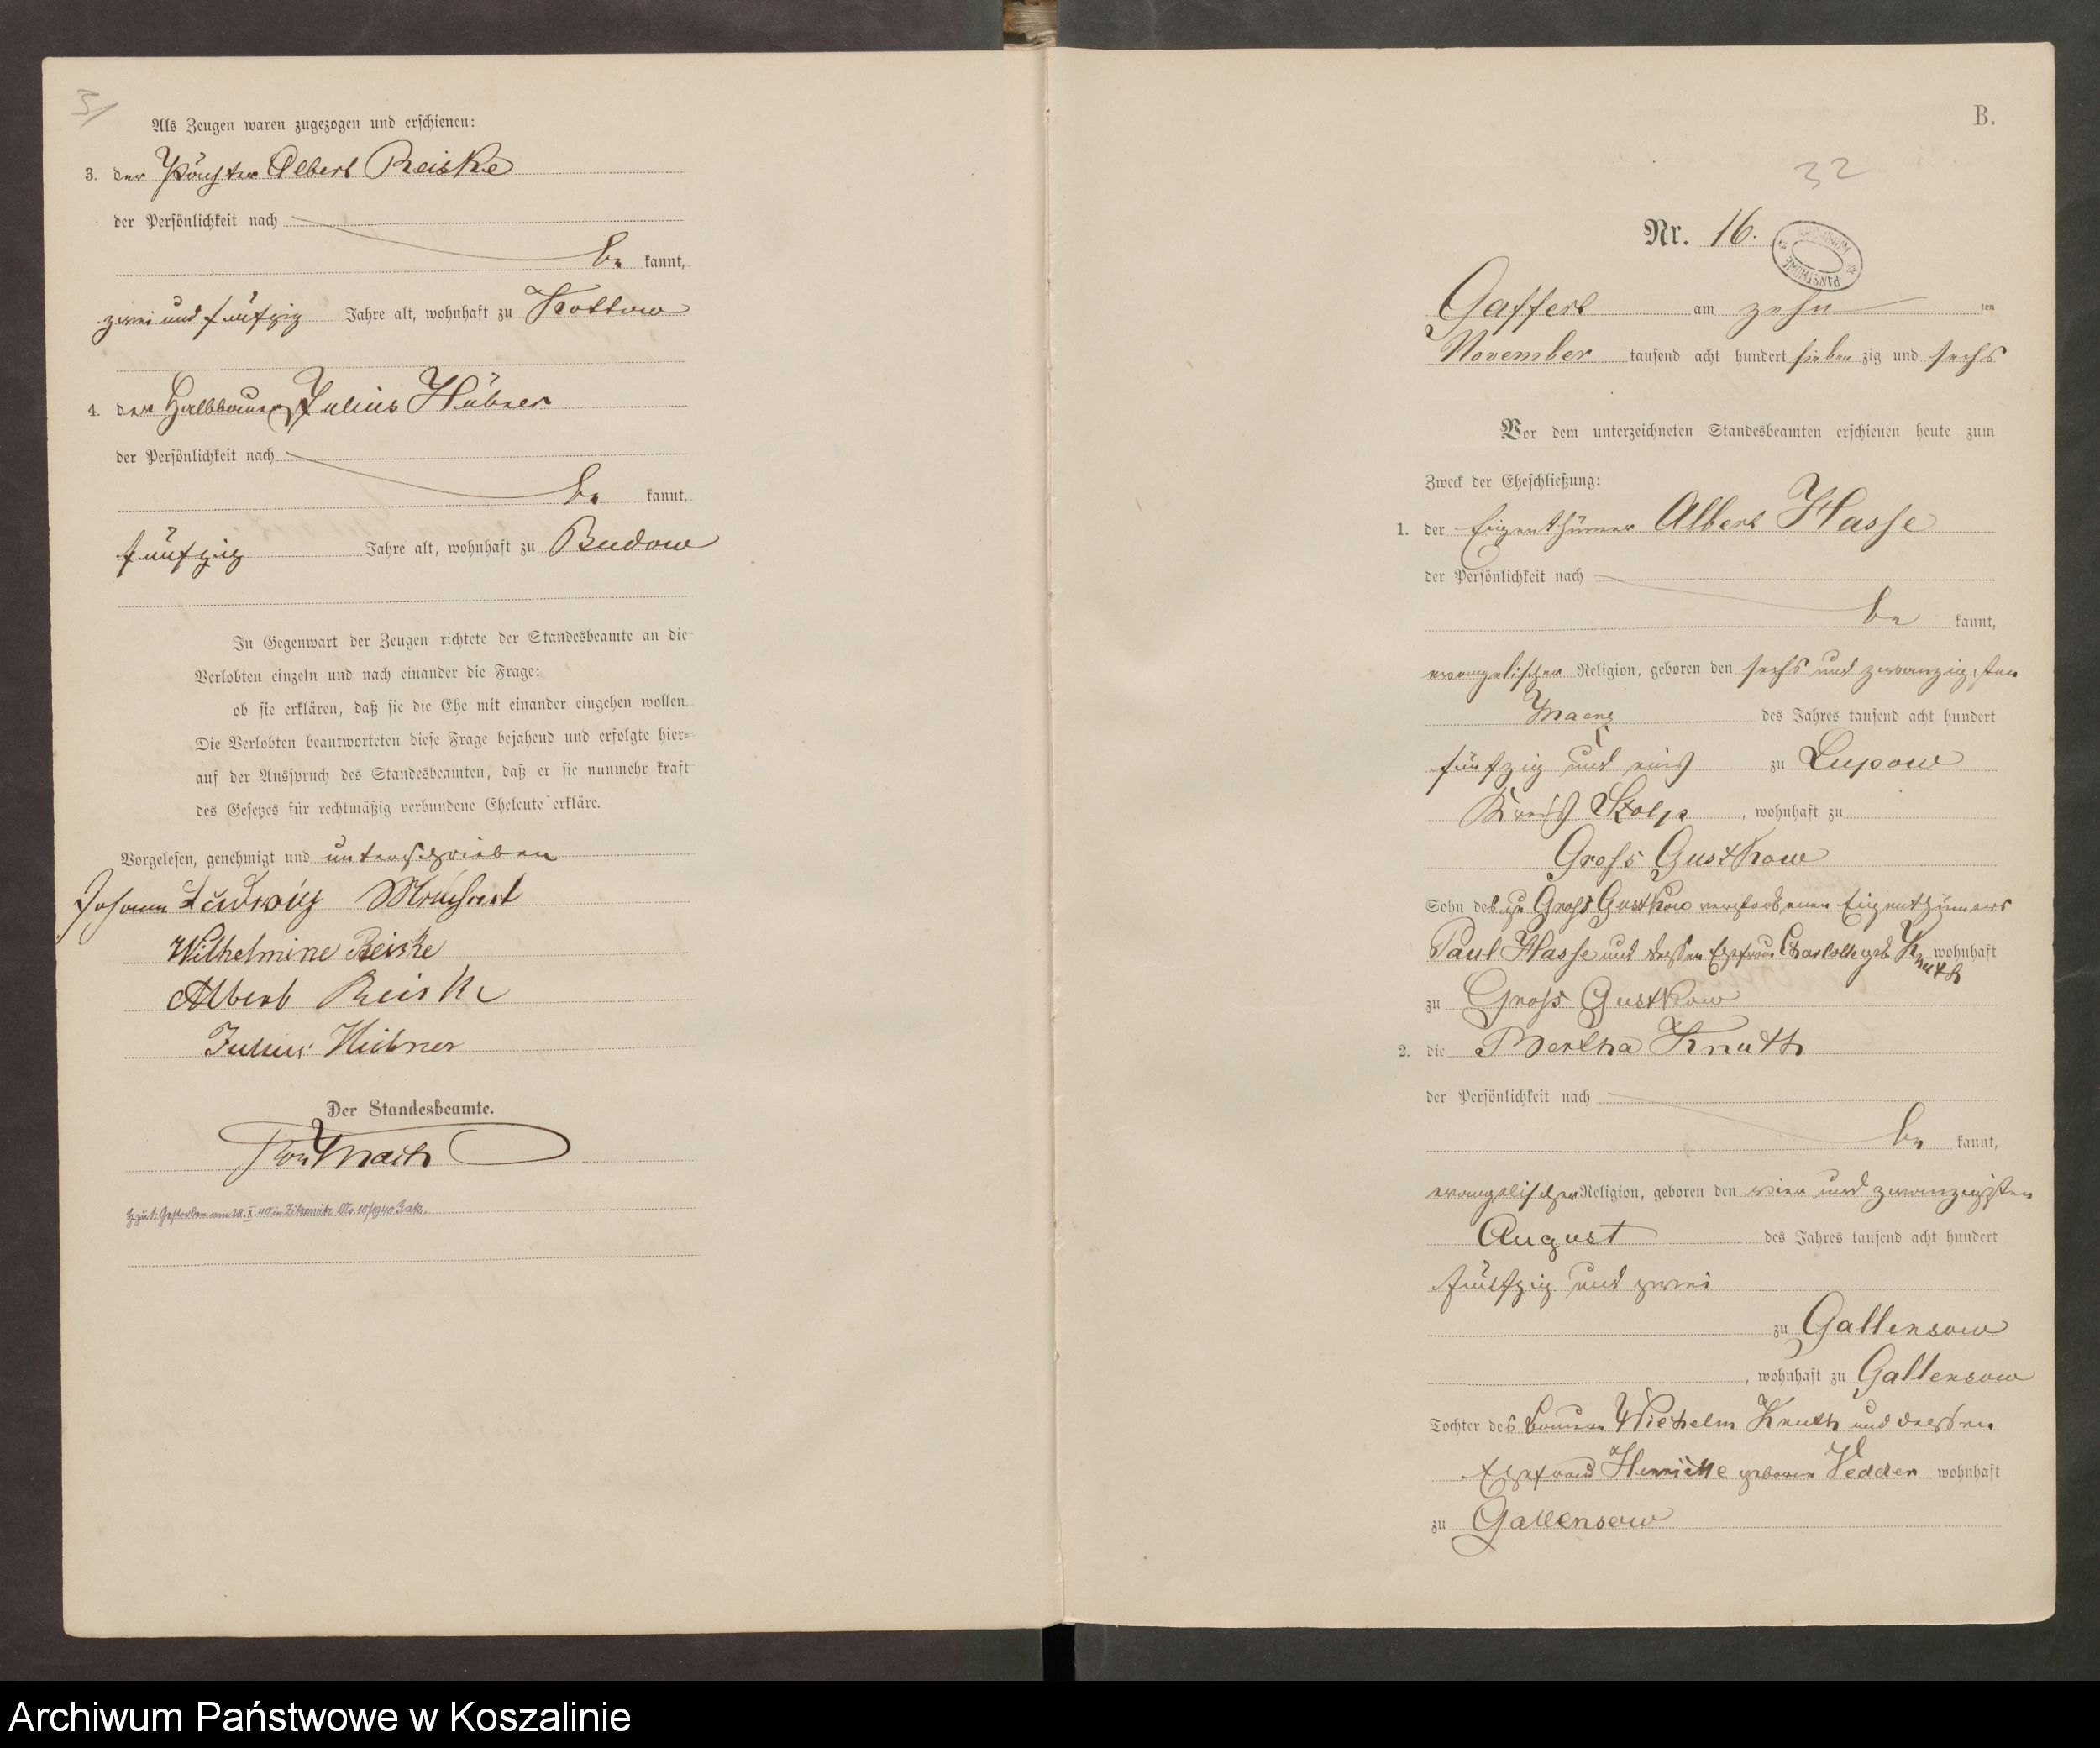 31
Als Zeugen waren zugezogen und erschienen:
3. der Pächter Albert Reiske
der Persönlichkeit nach
be kannt,
zwei und fünfzig Jahre alt, wohnhaft zu Kottow
4. der Halbbauer Julius Hübner
der Persönlichkeit nach
be kannt,
fünfzig Jahre alt, wohnhaft zu Budow
In Gegenwart der Zeugen richtete der Standesbeamte an die
Verlobten einzeln und nach einander die Frage:
ob sie erklären, daß sie die Ehe mit einander eingehen wollen.
Die Verlobten beantworteten diese Frage bejahend und erfolgte hier-
auf der Ausspruch des Standesbeamten, daß er sie nunmehr kraft
des Gesetzes für rechtmäßig verbundene Eheleute erkläre.
Vorgelesen, genehmigt und unterschrieben
Johann Ludwig
Wilhelmine Reiske
Albert Reiske
Julius Hübner
Der Standesbeamte.
z. zu 1: Gestorben am 28. X. 40 in Nr. 10/1940
B.
32
Nr. 16.
ARCHIWUM PAŃSTWOWE
Gaffert am zehn ten
November tausend acht hundert sieben zig und sechs
Vor dem unterzeichneten Standesbeamten erschienen heute zum
Zweck der Eheschließung:
1. der Eigenthümer Albert Hasse
der Persönlichkeit nach
be kannt,
evangelischer Religion, geboren den sechs und zwanzigsten
Maerz des Jahres tausend acht hundert
fünfzig und eins zu Lupow
Kreis Stolp, wohnhaft zu
Gross Gustkow
Sohn des zu Gross Gustkow verstorbenen Eigenthümers
Paul Hasse und dessen Ehefrau Charlotte geb Knuth wohnhaft
zu Gross Gustkow
2. die Bertha Knuth
der Persönlichkeit nach
be kannt,
evangelischer Religion, geboren den vier und zwanzigsten
August des Jahres tausend acht hundert
fünfzig und zwei
zu Gallensow
, wohnhaft zu Gallensow
Tochter des Bauern Wilhelm Knuth und dessen
Ehefrau Henriette geboren Vedder wohnhaft
zu Gallensow
Archiwum Państwowe w Koszalinie